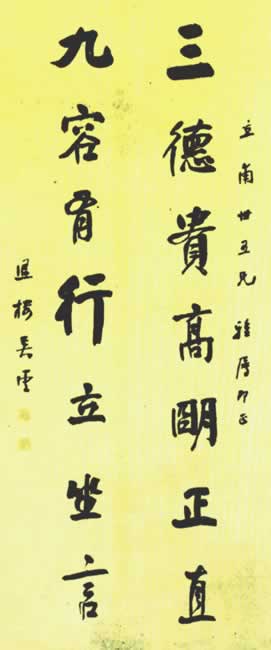 立甫世五兄 雅屬即正
三德貴高明正直
九容 行立坐言
退樓吳雲